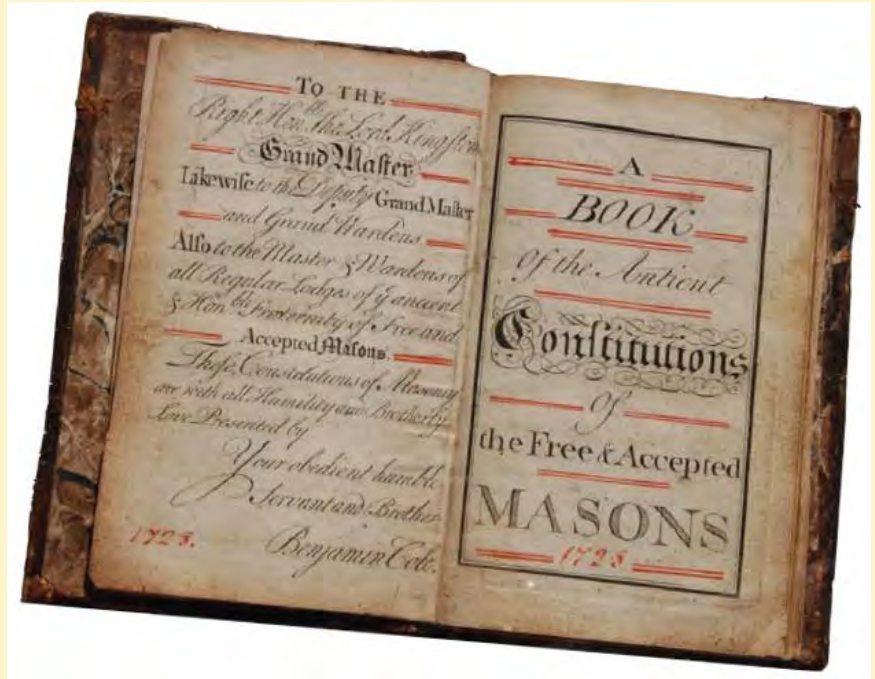 TO THE
Right Honble. The Lord Kingston
Grand Master
Likewiſe to the Deputy Grand Maſter
and Grand Wardens.
Alſo to the Master & Wardens of
all Regular Lodges of ye ancient
& Honble Fraternity of Free and
Accepted Maſons.
Theſe, Constitutions of Masonry
are with all Humility and Brotherly
Love Presented by
Your obedient humble
Servant and Brother
1728.
Benjamin Cole.
A
BOOK
Of the Antient
Conſtitutions
Of
the Free & Accepted
MASONS
1728